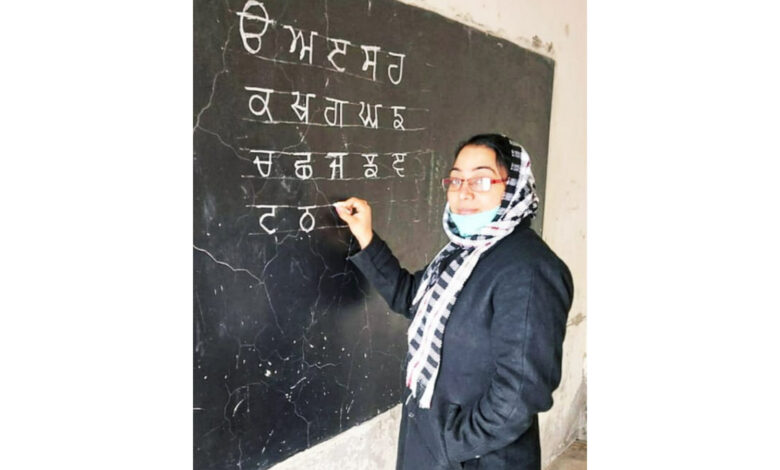 ੳ ਅ ੲ ਸ ਹ
ਕ ਖ ਗ ਘ ਙ
ਚ ਛ ਜ ਝ ਞ
ਟ ਠ